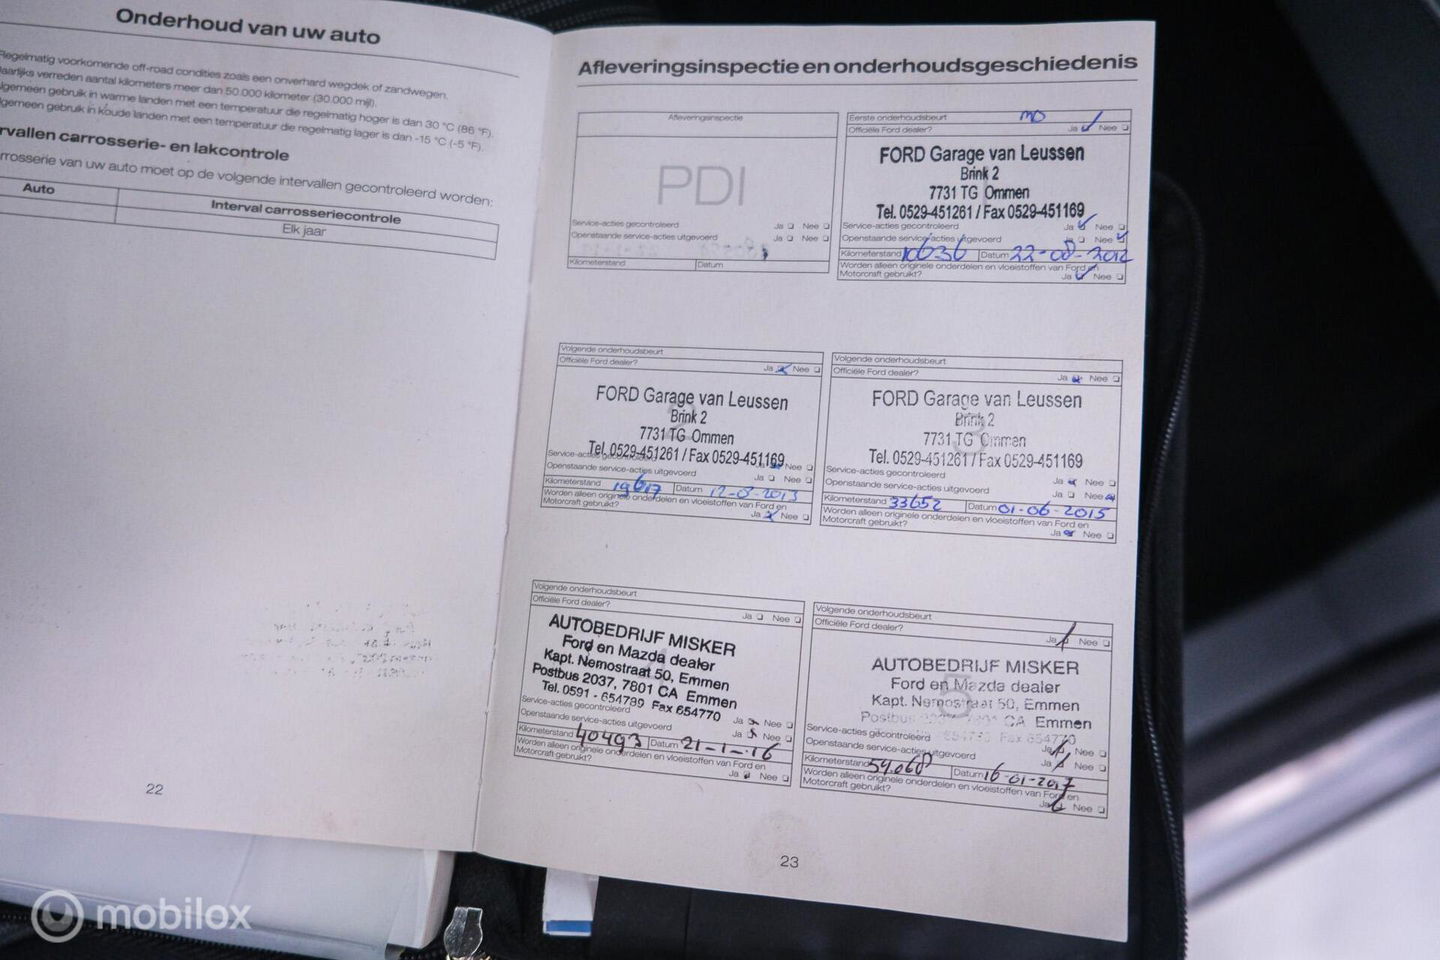 Onderhoud van uw auto
Regelmatig voorkomende off-road condities zoals een onverhard wegdek of zandwegen.
Jaarlijks verreden aantal kilometers meer dan 50.000 kilometer (30.000 mijl).
lgemeen gebruik in warme landen met een temperatuur die regelmatig hoger is dan 30 °C (86 °F).
gemeen gebruik in koude landen met een temperatuur die regelmatig lager is dan -15 °C (-5 °F).
rvallen carrosserie- en lakcontrole
rrosserie van uw auto moet op de volgende intervallen gecontroleerd worden:
Auto
Interval carrosseriecontrole
Elk jaar
22
Afleveringsinspectie en onderhoudsgeschiedenis
Afleveringsinspectie
PDI
Service-acties gecontroleerd Ja Nee
Openstaande service-acties uitgevoerd Ja Nee
Kilometerstand Datum
Eerste onderhoudsbeurt MD
Officiële Ford dealer? Ja Nee
FORD Garage van Leussen
Brink 2
7731 TG Ommen
Tel. 0529-451261 / Fax 0529-451169
Service-acties gecontroleerd Ja Nee
Openstaande service-acties uitgevoerd Nee
Kilometerstand 10636 Datum 22-08-2012
Worden alleen originele onderdelen en vloeistoffen van Ford en
Motorcraft gebruikt? Ja Nee
Volgende onderhoudsbeurt
Officiële Ford dealer? Ja Nee
FORD Garage van Leussen
Brink 2
7731 TG Ommen
Tel. 0529-451261 / Fax 0529-451169
Service-acties Nee
Openstaande service-acties uitgevoerd Ja Nee
Kilometerstand 19617 Datum 12-8-2013
Worden alleen originele onderdelen en vloeistoffen van Ford en
Motorcraft gebruikt? Ja Nee
Volgende onderhoudsbeurt
Officiële Ford dealer? Ja Nee
FORD Garage van Leussen
Brink 2
3
7731 TG Ommen
Tel. 0529-451261 / Fax 0529-451169
Service-acties gecontroleerd Ja Nee
Openstaande service-acties uitgevoerd Ja Nee
Kilometerstand 33652 Datum 01-06-2015
Worden alleen originele onderdelen en vloeistoffen van Ford en
Motorcraft gebruikt? Ja Nee
Volgende onderhoudsbeurt
Officiële Ford dealer? Ja Nee
AUTOBEDRIJF MISKER
Ford en Mazda dealer
Kapt. Nemostraat 50, Emmen
Postbus 2037, 7801 CA Emmen
Tel. 0591 - 654789 Fax 654770
Service-acties gecontroleerd Ja Nee
Openstaande service-acties uitgevoerd Ja Nee
Kilometerstand 40493 Datum 21-1-'16
Worden alleen originele onderdelen en vloeistoffen van Ford en
Motorcraft gebruikt? Ja Nee
Volgende onderhoudsbeurt
Officiële Ford dealer? Ja Nee
AUTOBEDRIJF MISKER
Ford en Mazda dealer
5
Kapt. Nemostraat 50, Emmen
Postbus CA Emmen
Fax 654770
Service-acties gecontroleerd Ja Nee
Openstaande service-acties uitgevoerd Ja Nee
Kilometerstand 54.068 Datum 16-01-2017
Worden alleen originele onderdelen en vloeistoffen van Ford en
Motorcraft gebruikt? Ja Nee
23
mobilox